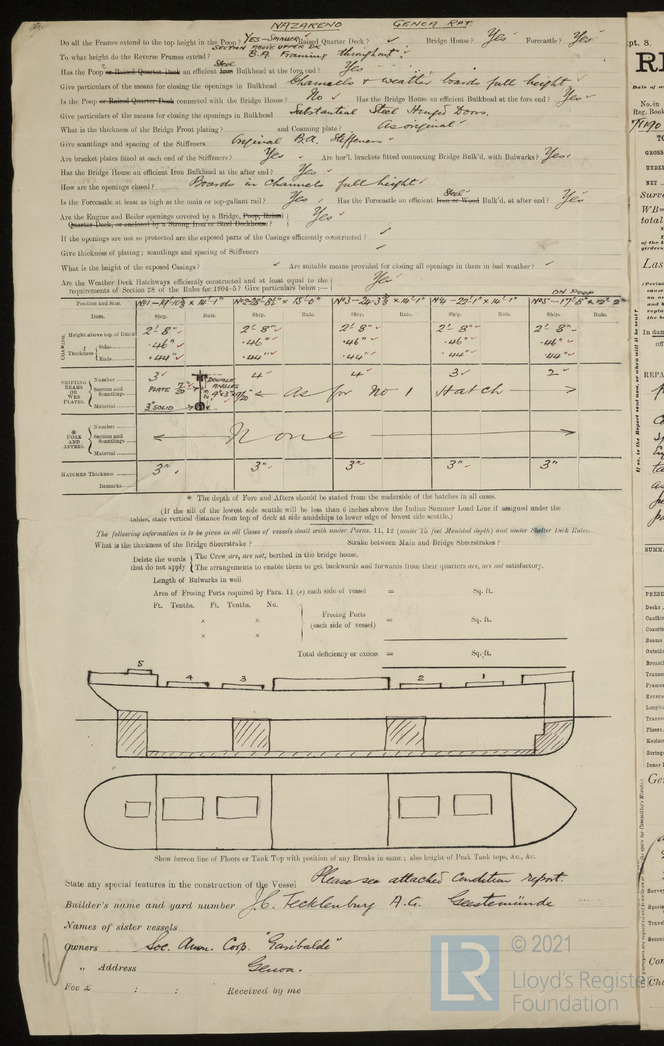 NAZARENO GENOA RPT.
Do all the Frames extend to the top height in the Poop? Yes - Smaller section above upper dk Raised Quarter Deck? ✓ Bridge House? Yes Forecastle? Yes
To what height do the Reverse Frames extend? B.A. Framing throughout
Has the Poop or Raised Quarter Deck an efficient Iron Steel Bulkhead at the fore end? Yes
Give particulars of the means for closing the openings in Bulkhead Channels & weather boards full height
Is the Poop or Raised Quarter Deck connected with the Bridge House? No Has the Bridge House an efficient Bulkhead at the fore end? Yes
Give particulars of the means for closing the openings in Bulkhead Substantial Steel Hinged Doors.
What is the thickness of the Bridge Front plating? and Coaming plate? As original
Give scantlings and spacing of the Stiffeners Original B.A. Stiffeners
Are bracket plates fitted at each end of the Stiffeners? Yes Are hor'l. brackets fitted connecting Bridge Bulk'd, with Bulwarks? Yes.
Has the Bridge House an efficient Iron Bulkhead at the after end? Yes
How are the openings closed? Boards in Channels full height
Is the Forecastle at least as high as the main or top-gallant rail? Yes Has the Forecastle an efficient Iron or Wood Steel Bulk'd, at after end? Yes
Are the Engine and Boiler openings covered by a Bridge, Poop, Raised
Quarter Deck, or enclosed by a Strong Iron or Steel Deckhouse? Yes
If the openings are not so protected are the exposed parts of the Casings efficiently constructed? ✓
Give thickness of plating; scantlings and spacing of Stiffeners ✓
What is the height of the exposed Casings? ✓ Are suitable means provided for closing all openings in them in bad weather? ✓
Are the Weather Deck Hatchways efficiently constructed and at least equal to the
requirements of Section 28 of the Rules for 1904-5? Give particulars below:— Yes
ON POOP
Position and Size. No 1 - 19'-10½" × 14'-1" No 2 - 28'-8½" × 15'-0" No 3 - 24'-3½" × 14'-1" No 4 - 22'-1" × 14'-1" No 5 - 17'-8" ×
Item. Ship. Rule. Ship. Rule. Ship. Rule. Ship. Rule. Ship. Rule.
COAMING. Height above top of DECK 2'-8" 2'-8" 2'-8" 2'-8" 2'-8"
Thickness Sides .46" .46" .46" .46" .46"
Ends .44" .44" .44" .44" .44"
SHIFTING BEAMS OR WEB PLATES. Number 3 4 4 3 2
Section and Scantlings PLATE DOUBLE ANGLES As for No 1 Hatch
Material 3" SOLID
* FORE AND AFTERS. Number
Section and Scantlings None
Material
HATCHES Thickness 3" 3" 3" 3" 3"
Remarks
* The depth of Fore and Afters should be stated from the underside of the hatches in all cases.
(If the sill of the lowest side scuttle will be less than 6 inches above the Indian Summer Load Line if assigned under the
tables, state vertical distance from top of deck at side amidships to lower edge of lowest side scuttle.)
The following information is to be given in all Cases of vessels dealt with under Paras. 11, 12 (under 15 feet Moulded depth) and under Shelter Deck Rules.
What is the thickness of the Bridge Sheerstrake? Strake between Main and Bridge Sheerstrakes?
Delete the words that do not apply The Crew are, are not, berthed in the bridge house.
The arrangements to enable them to get backwards and forwards from their quarters are, are not satisfactory.
Length of Bulwarks in well
Area of Freeing Ports required by Para. 11 (e) each side of vessel = Sq. ft.
Ft. Tenths. Ft. Tenths. No.
× × Freeing Ports
(each side of vessel) = Sq. ft.
× ×
Total deficiency or excess = Sq. ft.
5 4 3 2 1
Show hereon line of Floors or Tank Top with position of any Breaks in same; also height of Peak Tank tops, &c., &c.
State any special features in the construction of the Vessel Please see attached Condition report.
Builder's name and yard number J.C. Tecklenburg A.G. Geestemünde
Names of sister vessels
Owners Soc. Anon. Corp. "Garibaldi"
„ Address Genoa.
Fee £ : : Received by me
LR © 2021
Lloyd's Register
Foundation